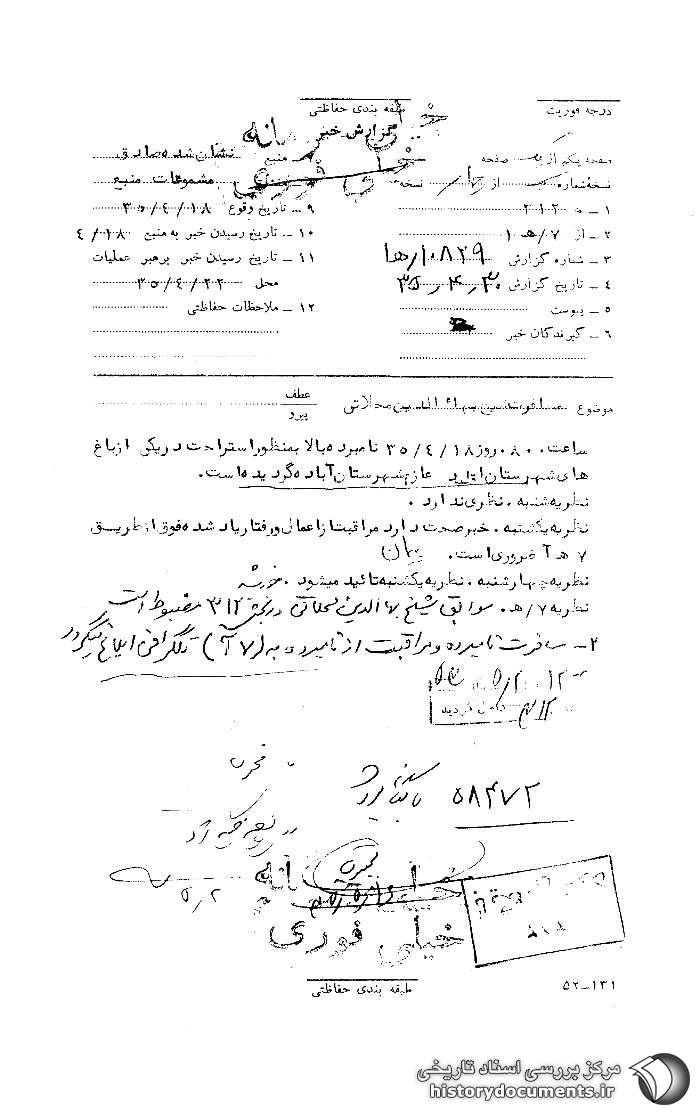 درجه فوریت
طبقه بندی حفاظتی
خیلی محرمانه
گزارش خبر
خیلی فوری
صفحه یکم از یک صفحه
نسخه شماره از نسخه
۱ ـ به ۳۱۲
۲ ـ از ۷/هـ ۱
۳ ـ شماره گزارش ۱۰۸۲۹/ها
۴ ـ تاریخ گزارش ۳۵/۴/۳۰
۵ ـ پیوست
۶ ـ گیرندگان خبر
منبع نشان شده صادق
مشموعات منبع
۹ ـ تاریخ وقوع ۳۵/۴/۱۸
۱۰ ـ تاریخ رسیدن خبر به منبع ۴/۱۸
۱۱ ـ تاریخ رسیدن خبر برهبر عملیات
محل ۳۵/۴/۲۲
۱۲ ـ ملاحظات حفاظتی
موضوع مسافرت شیخ بهاءالدین محلاتی
عطف
پیرو
ساعت ۰۸۰۰ روز ۳۵/۴/۱۸ نامبرده بالا بمنظور استراحت در یکی از باغ
های شهرستان اقلید عازم شهرستان آباده گردیده است.
نظریه شنبه . نظری ندارد .
نظریه یکشنبه . خبر صحت دارد مراقبت از اعمال و رفتار یاد شده فوق از طریق
۷ هـ آ ضروری است .
نظریه چهارشنبه . نظریه یکشنبه تائید میشود .
نظریه ۷/هـ. سوابق شیخ بهاالدین محلاتی در بخش ۳۱۲ مضبوط است
۲ـ مسافرت نامبرده و مراقبت از نامبرده به (۷ آ) تلگرافی ابلاغ میگردد
گردید
بایگانی شود
۵۸۴۷۲
۵/۲
خیلی محرمانه
خیلی فوری
طبقه بندی حفاظتی
۵۲-۱۳۱
مرکز بررسی اسناد تاریخی
historydocuments.ir